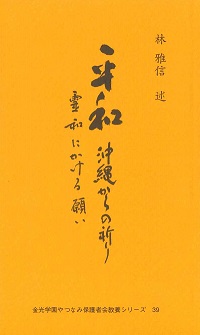 林 雅信 述
平和
沖縄からの祈り
霊和にかける願い
金光学園やつなみ保護者会教養シリーズ 39